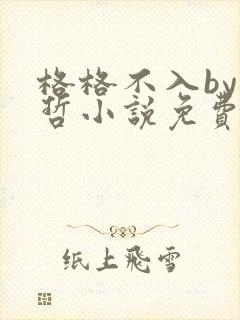 格格不入by
哲小說免費
纸上飛雪